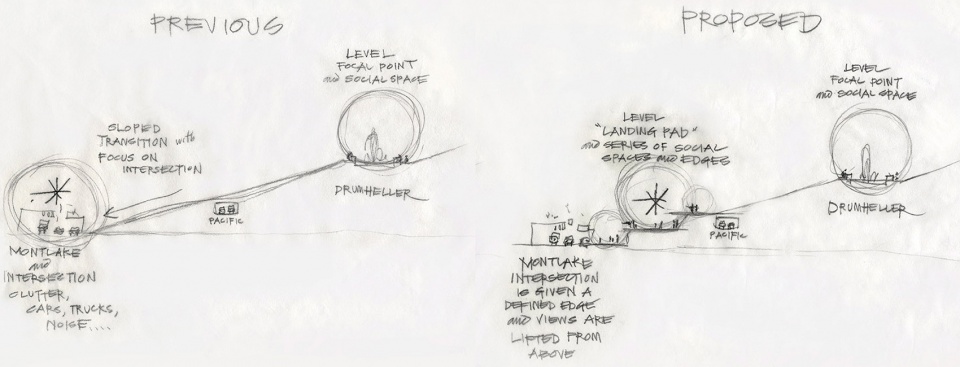 PREVIOUS
LEVEL
FOCAL POINT
and SOCIAL SPACE
SLOPED
TRANSITION with
FOCUS ON
INTERSECTION
DRUMHELLER
PACIFIC
MONTLAKE
and
INTERSECTION
CLUTTER,
CARS, TRUCKS,
NOISE....
PROPOSED
LEVEL
FOCAL POINT
and SOCIAL SPACE
LEVEL
"LANDING PAD"
and SERIES OF SOCIAL
SPACES and EDGES
DRUMHELLER
PACIFIC
MONTLAKE
INTERSECTION
IS GIVEN A
DEFINED EDGE
and VIEWS ARE
LIFTED FROM
ABOVE